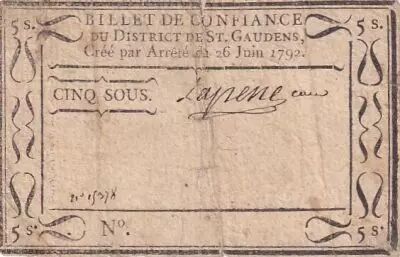 5 s. BILLET DE CONFIANCE 5 s.
DU DISTRICT DE ST. GAUDENS,
Créé par Arrêté du 26 Juin 1792.
CINQ SOUS.
n° 15378
5 s. N°. 5 s.